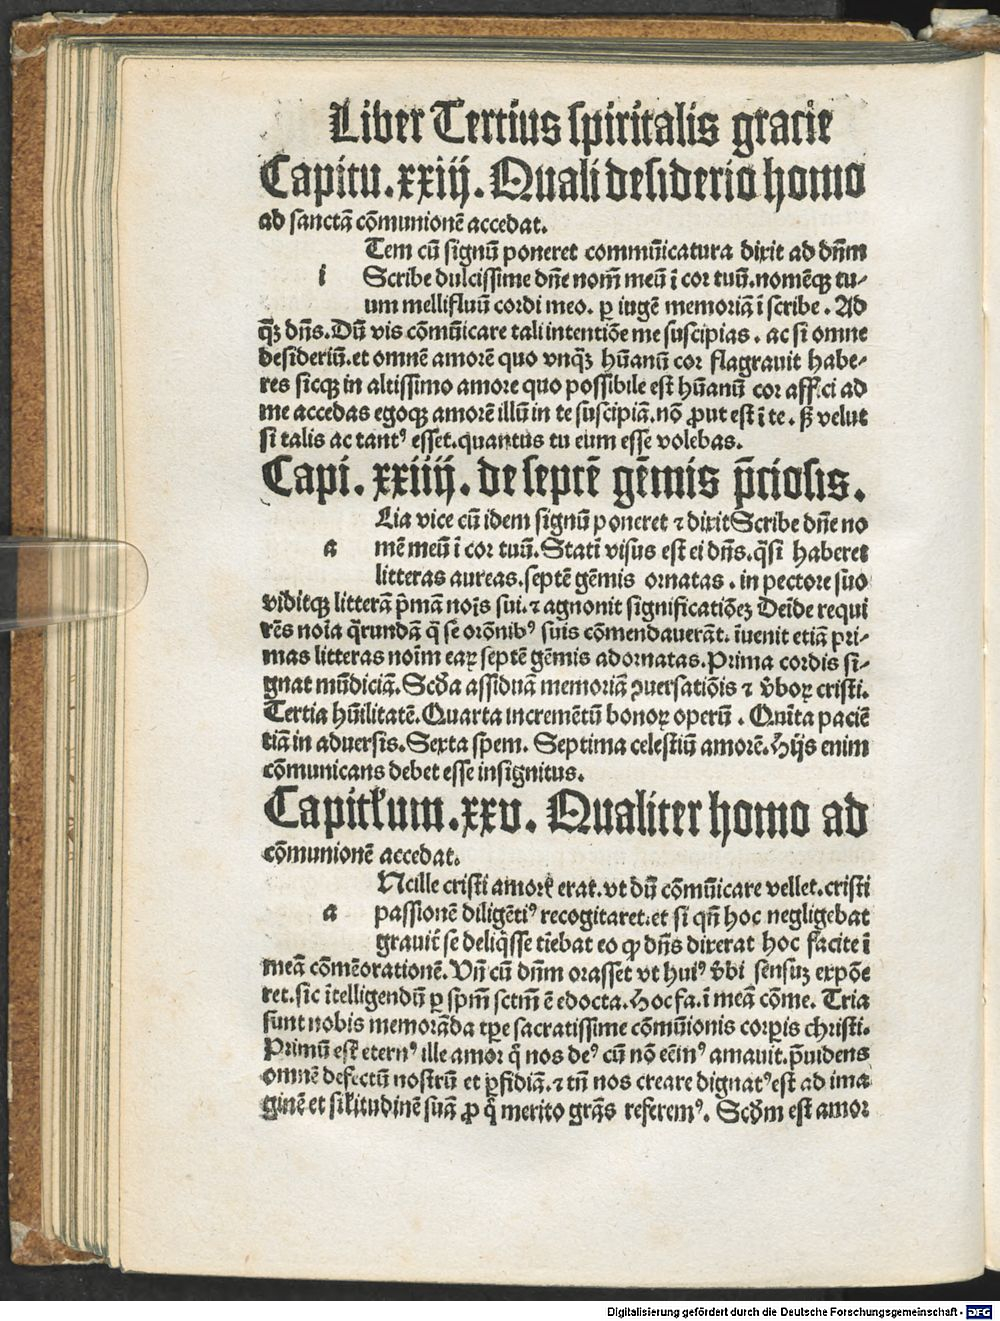 Liber Tertius spiritalis gracie
Capitu. xxiij. Quali desiderio homo
ad sanctā cōmunionē accedat.
Tem cū signū poneret commūicatura dixit ad dn̄m
i Scribe dulcissime dn̄e nom̄ meū ī cor tuū. nomēqꝫ tu-
um mellifluū cordi meo. ꝑ iugē memoriā īscribe. Ad
q̄ꝫ dn̄s. Dū vis cōmūicare tali intentiōe me suscipias. ac si omne
desideriū. et omnē amorē quo vnq̄ꝫ hūanū cor flagrauit habe-
res sicqꝫ in altissimo amore quo possibile est hūanū cor affici ad
me accedas egoqꝫ amorē illū in te suscipiā. nō ꝓut est ī te. ꝭꝫ velut
si talis ac tantꝰ esset. quantus tu eum esse volebas.
Capi. xxiiij. de septē gēmis p̄ciosis.
Lia vice cū idem signū poneret ⁊ dixit Scribe dn̄e no
a mē meū ī cor tuū. Statī visus est ei dn̄s. q̄si haberet
litteras aureas. septē gēmis ornatas. in pectore suo
viditqꝫ litterā p̄mā noīs sui. ⁊ agnouit significatiōeꝫ Deīde requi
rēs noīa q̄rundā q̄ se orōnibꝰ suis cōmendauerāt. īuenit etiā pri-
mas litteras noīm eaꝝ septē gēmis adornatas. Prima cordis si-
gnat mūdiciā. Scd̄a assiduā memoriā ꝯuersatiōis ⁊ v̄boꝝ cristi.
Tertia hūilitatē. Quarta incremētū bonoꝝ operū. Quīta paciē
tiā in aduersis. Sexta spem. Septima celestiū amorē. Hijs enim
cōmunicans debet esse insignitus.
Capitƚum. xxv. Qualiter homo ad
cōmunionē accedat.
Ncille cristi amoris erat. vt dū cōmūicare vellet. cristi
a passionē diligētiꝰ recogitaret. et si qn̄ hoc negligebat
grauit̄ se deliq̄sse tīebat eo ꝙ dn̄s dixerat hoc facite ī
meā cōmēorationē. Vn̄ cū dn̄m orasset vt huiꝰ v̄bi sensuꝫ expōe
ret. sic ītelligendū ꝑ spm̄ sctm̄ ē edocta. Hoc fa. ī meā cōme. Tria
sunt nobis memorāda tꝑe sacratissime cōmūionis corꝑis christi.
Primū est eternꝰ ille amor q̄ nos deꝰ cū nō eēmꝰ amauit. p̄uidens
omnē defectū nostrū et ꝑfidiā. ⁊ tn̄ nos creare dignatꝰ est ad ima
ginē et siƚitudinē suā ꝓ q̄ merito grās referemꝰ. Scd̄m est amor
Digitalisierung gefördert durch die Deutsche Forschungsgemeinschaft - DFG